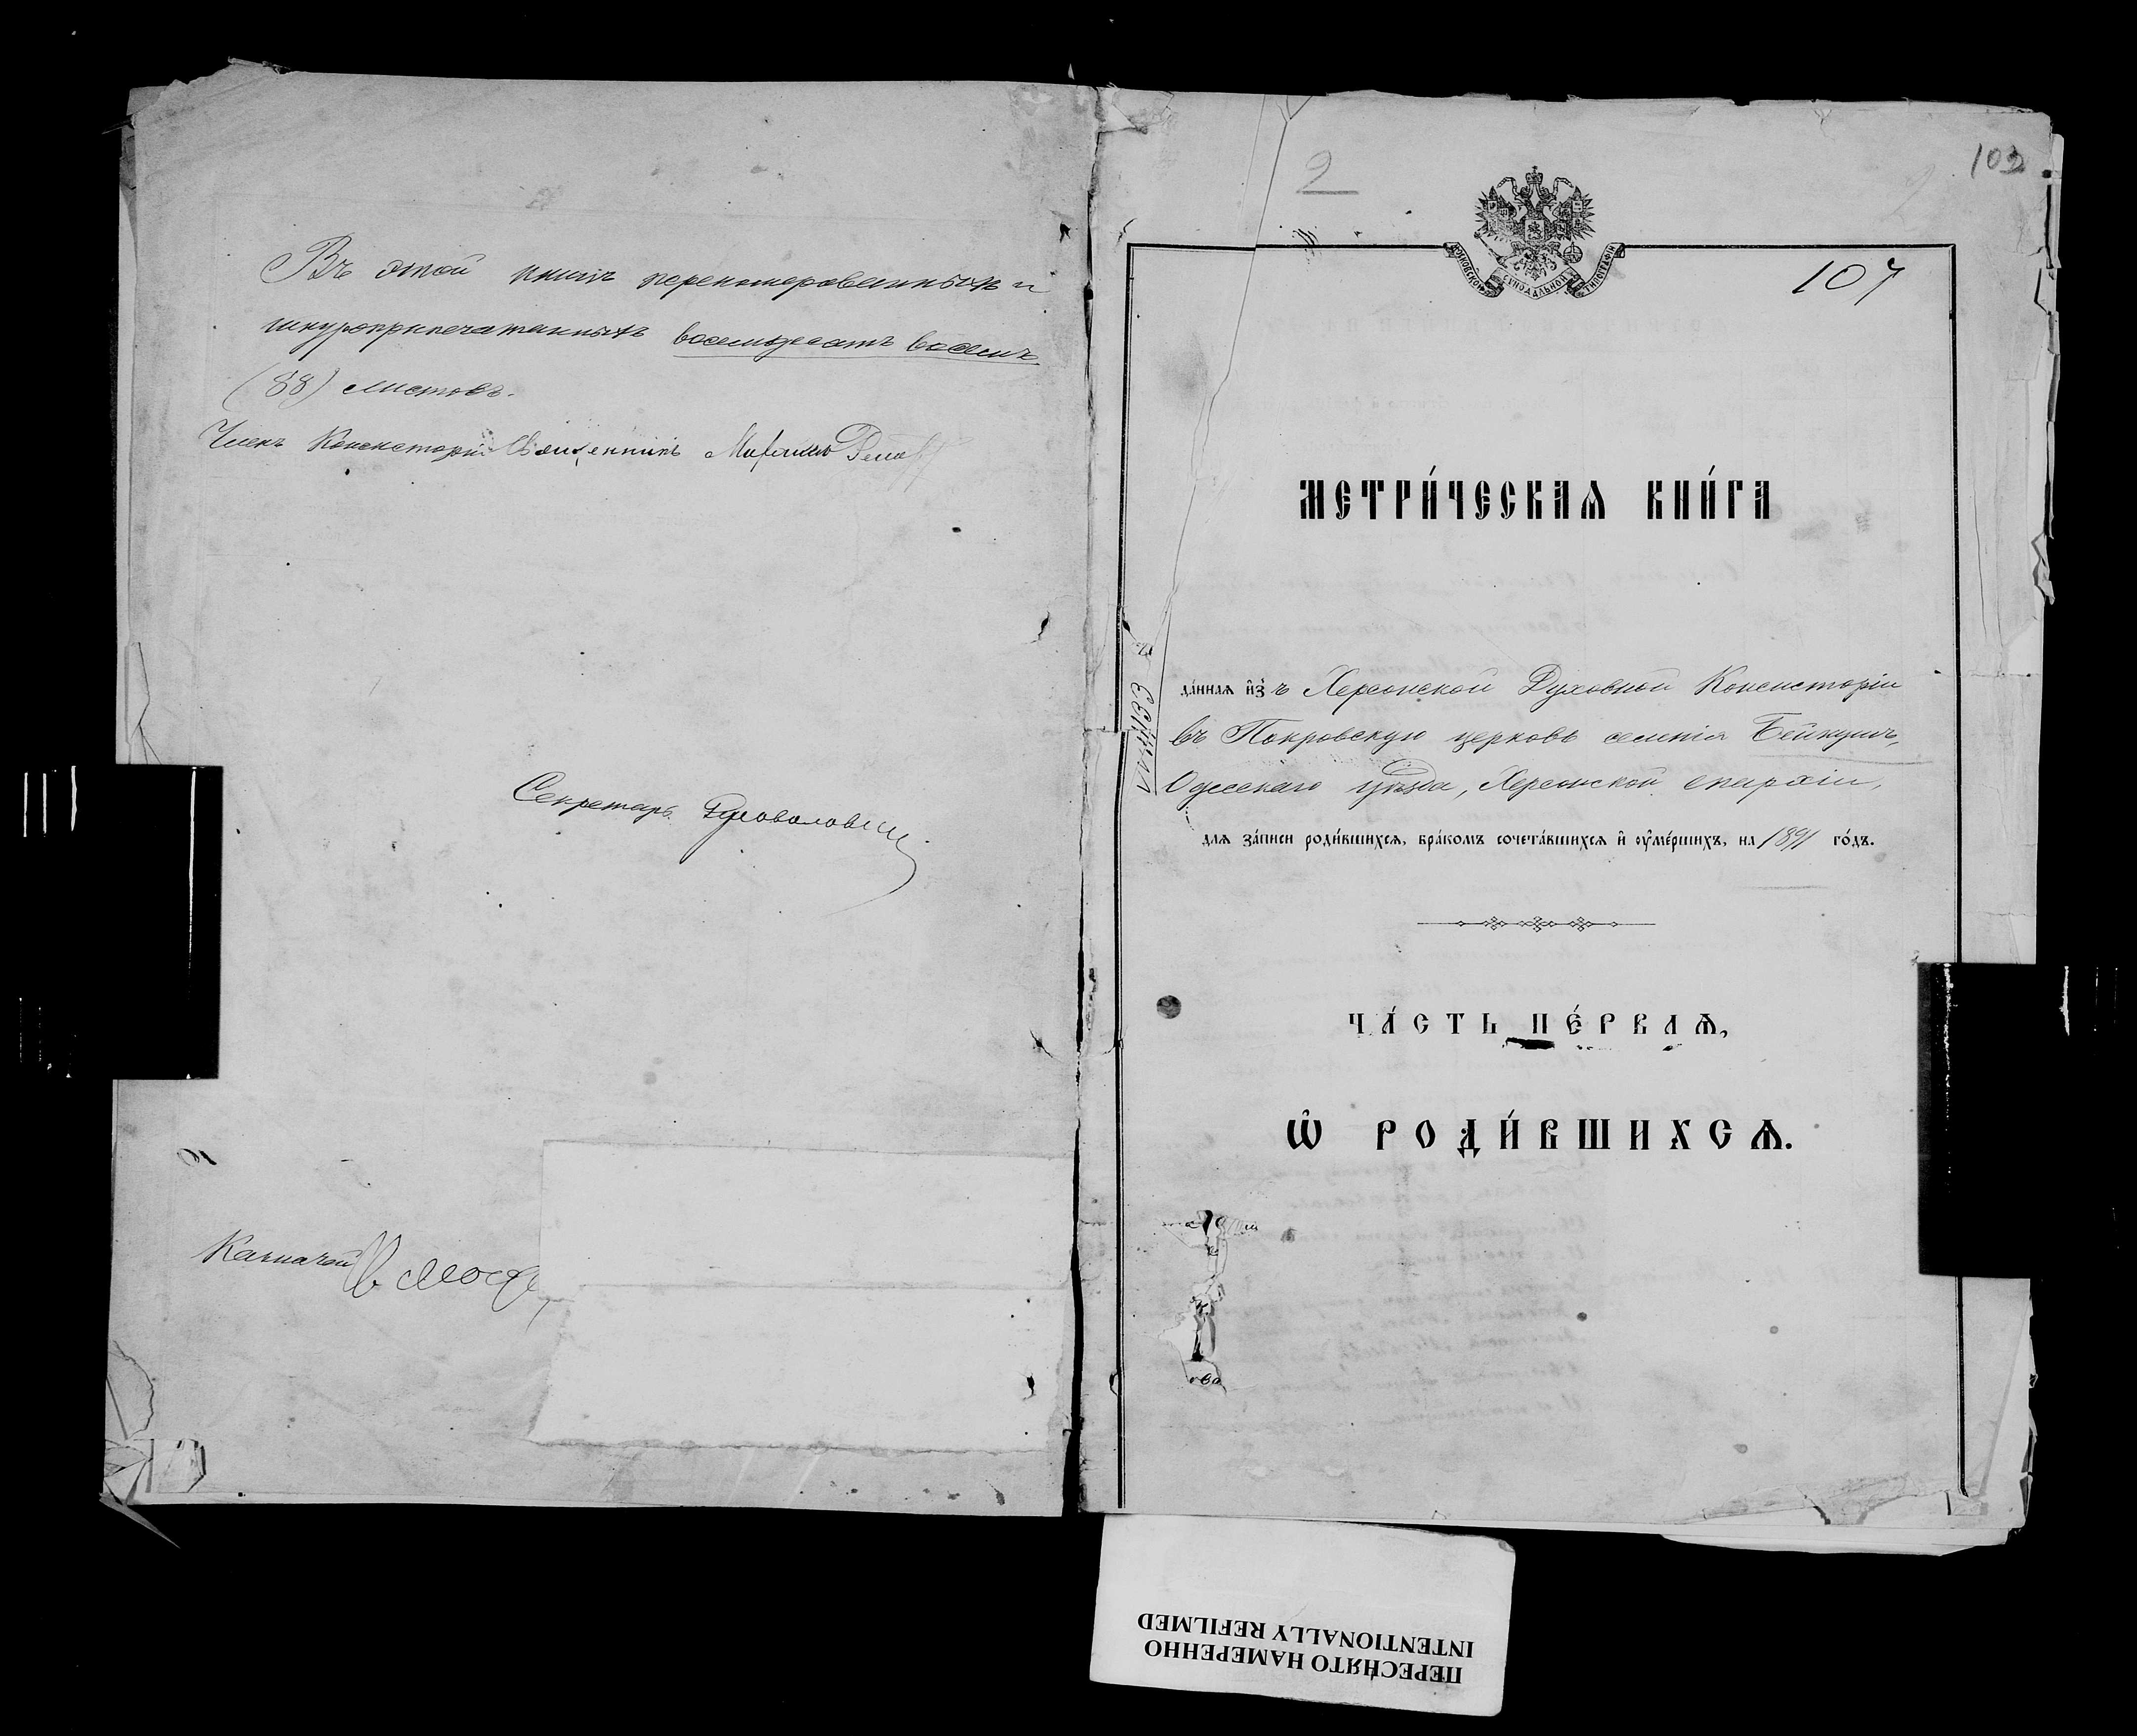 Въ этой книгѣ перенумерованныхъ и
шнуроприпечатанныхъ восемьдесятъ восемь
(88) листовъ.
Членъ Консисторіи Священникъ
Секретарь
Казначей
2
102
МОСКОВСКОЙ СѴНОДАЛЬНОЙ ТИПОГРАФІИ
107
МЕТРИ́ЧЕСКАѦ КНИ́ГА
да́ннаѧ и҆зъ Херсонской Духовной Консисторіи
въ Покровскую церковь селенія Бейкушъ,
Одесскаго уѣзда, Херсонской епархіи,
длѧ за́писи роди́вшихсѧ, бра́комъ сочета́вшихсѧ и҆ оу҆ме́ршихъ, на 1891 го́дъ.
ЧА́СТЬ ПЕ́РВАѦ,
Ѡ҆ РОДИ́ВШИХСѦ.
ПЕРЕСНЯТО НАМЕРЕННО
INTENTIONALLY REFILMED